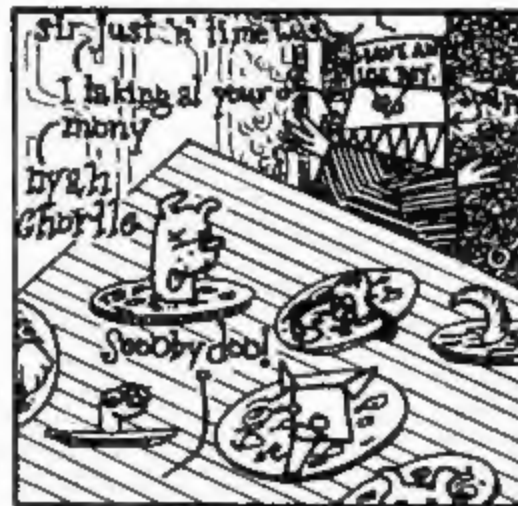 sir Just 'n' time was
I taking at your
mony
nyah
Ghorlle
HAVE AN
ICE DAY
Scooby doo!